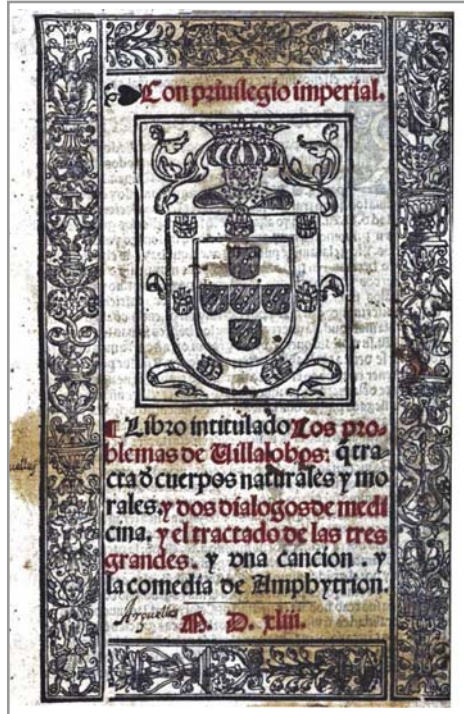 Con priuilegio imperial.
¶ Libro intitulado Los pro-
blemas de Uillalobos: q̃ tra-
cta d̓ cuerpos naturales y mo
rales. y dos dialogos de medi
cina. y el tractado de las tres
grandes. y vna canción. y
la comedia de Amphytrion.
Arguelles
M. D. xliii.